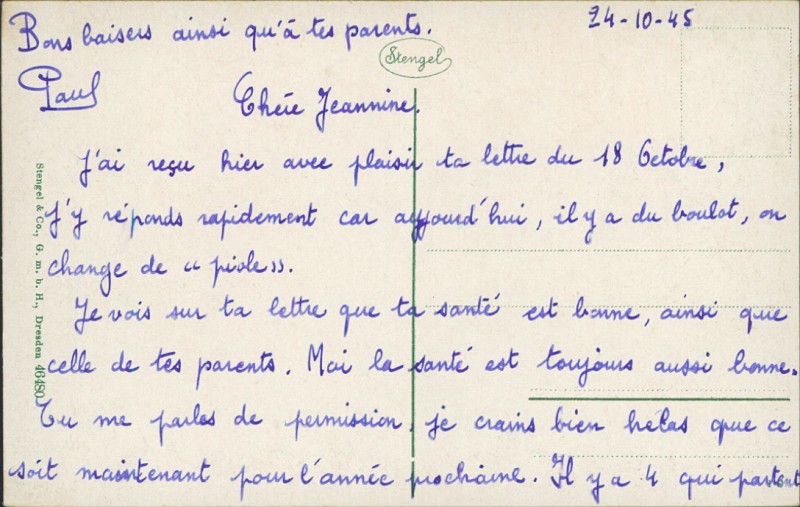 24-10-45
Bons baisers ainsi qu'à tes parents.
Paul
Stengel
Chère Jeannine.
J'ai reçu hier avec plaisir ta lettre du 18 Octobre,
J'y réponds rapidement car aujourd'hui, il y a du boulot, on
change de "piole".
Je vois sur ta lettre que ta santé est bonne, ainsi que
celle de tes parents. Moi la santé est toujours aussi bonne.
Tu me parles de permission, je crains bien helas que ce
soit maintenant pour l'année prochaine. Il y a 4 qui partent
Stengel & Co., G. m. b. H., Dresden 46480